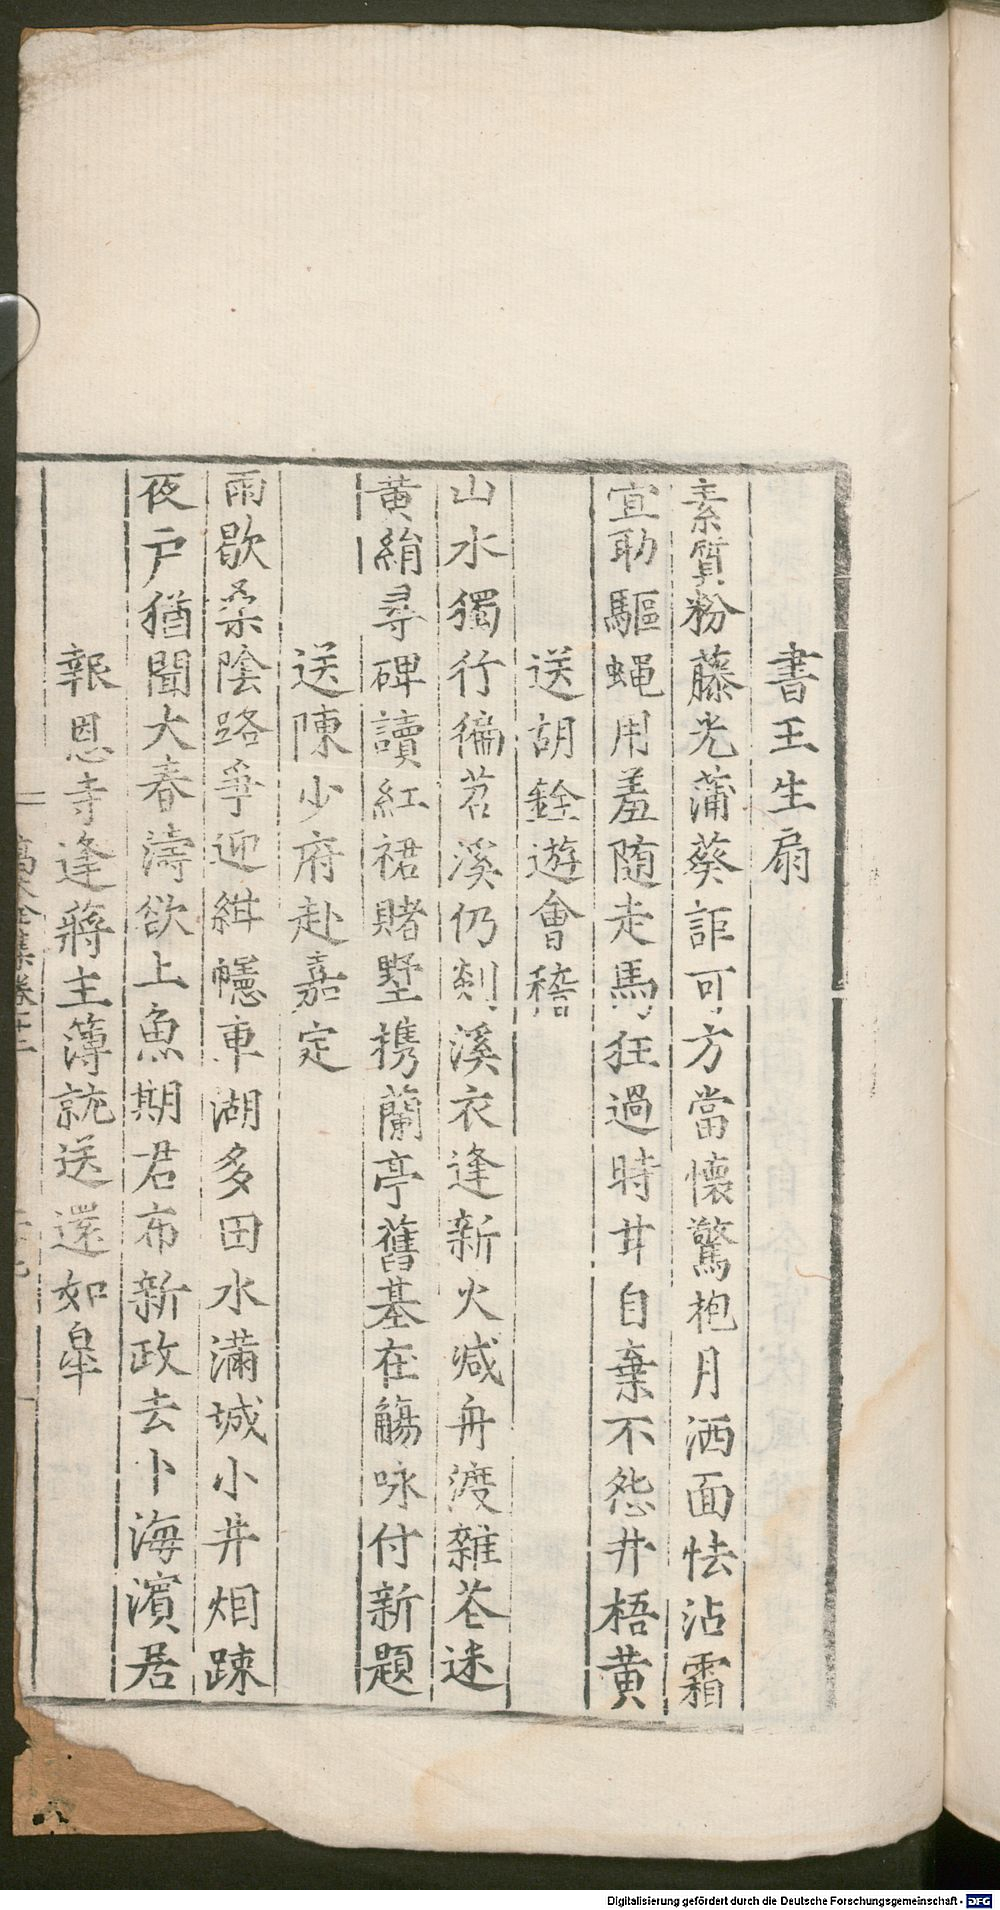 書王生扇
素質粉藤光蒲葵詎可方當懷驚抱月洒面怯沾霜
宜助驅蝇用羞随走馬狂過時甘自棄不怨井梧黄
送胡銓遊會稽
山水獨行徧苕溪仍剡溪衣逢新火減舟渡雜花迷
黄絹尋碑讀紅裙賭墅携蘭亭舊基在觴咏付新題
送陳少府赴嘉定
雨歇桑陰路爭迎緋幰車湖多田水滿城小井烟踈
夜户猶聞犬春濤欲上魚期君布新政去卜海濱居
報恩寺逢蔣主簿就送還如臯
全集卷十二
Digitalisierung gefördert durch die Deutsche Forschungsgemeinschaft - DFG